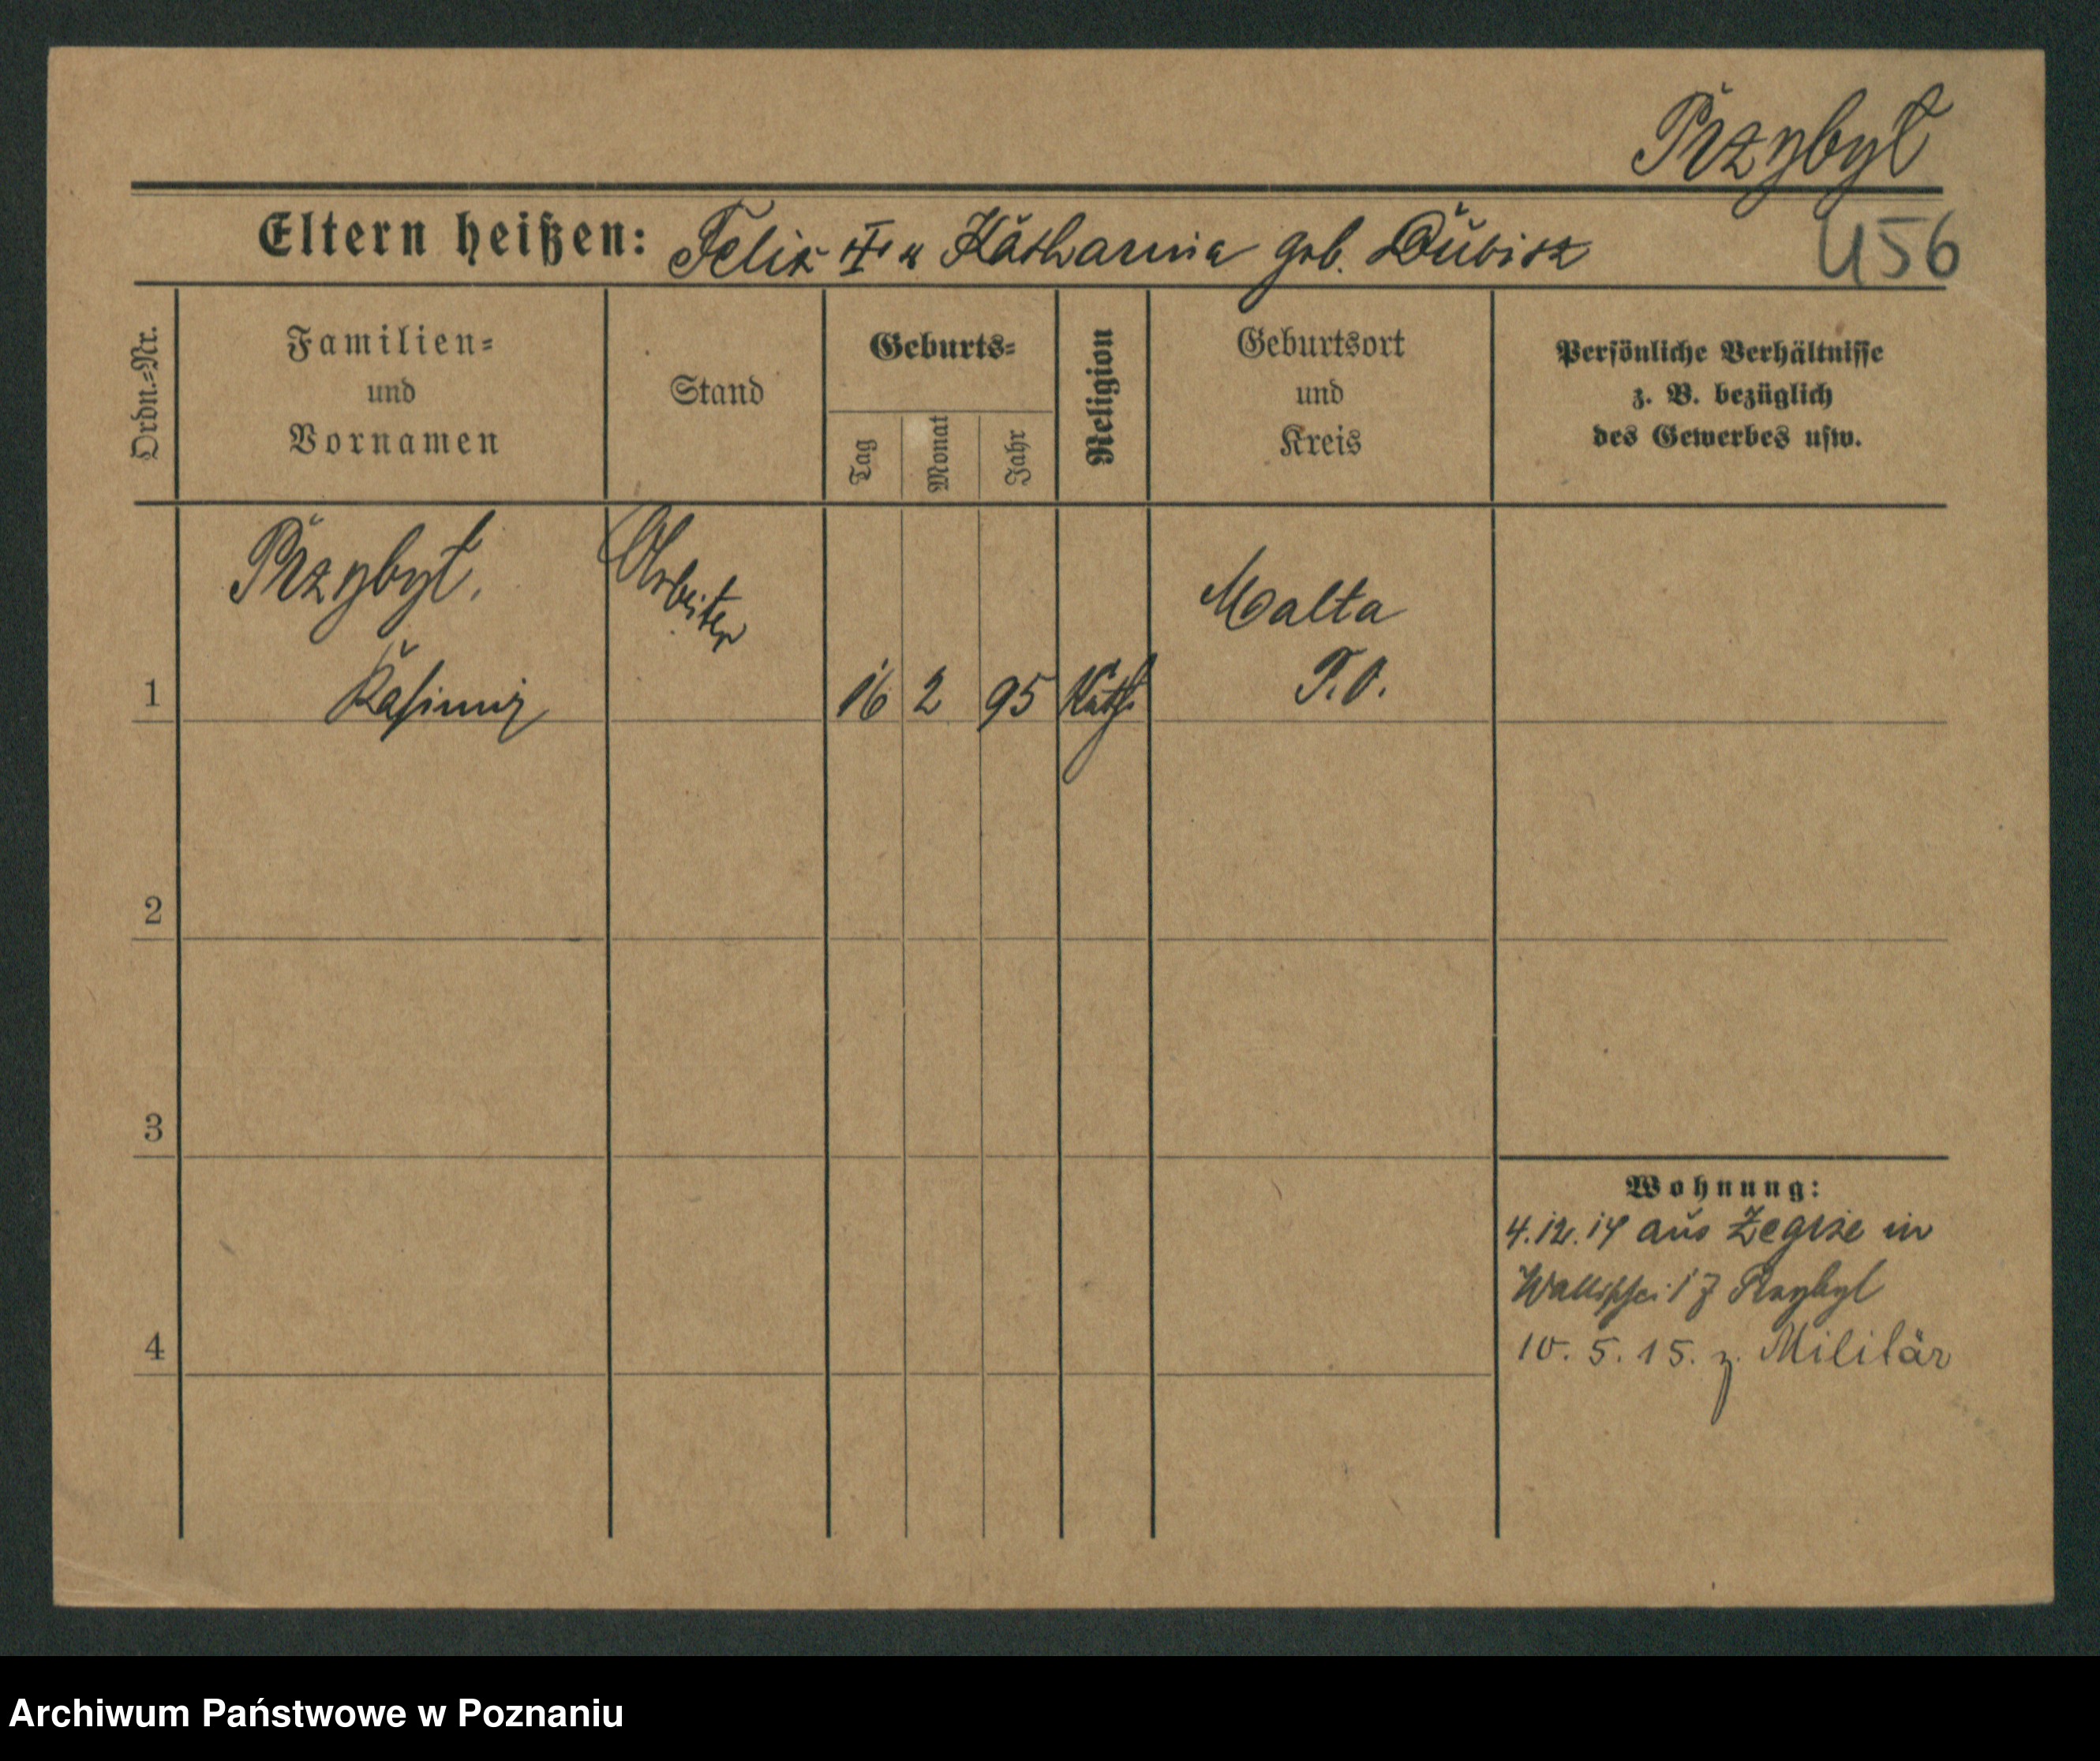 Przybył
Eltern heißen: Felix u Katharina geb. Dubisz
456
Ordn.=Nr.
Familien=
und
Vornamen
Stand
Geburts=
Tag
Monat
Jahr
Religion
Geburtsort
und
Kreis
Persönliche Verhältnisse
z. B. bezüglich
des Gewerbes usw.
1
Przybył.
Kasimir
Arbeiter
16 2 95 Kath.
Malta
P.O.
2
3
4
Wohnung:
4.12.14 aus Zegrze in
Wallischei 17 Przybyl
10. 5. 15. z. Militär
Archiwum Państwowe w Poznaniu